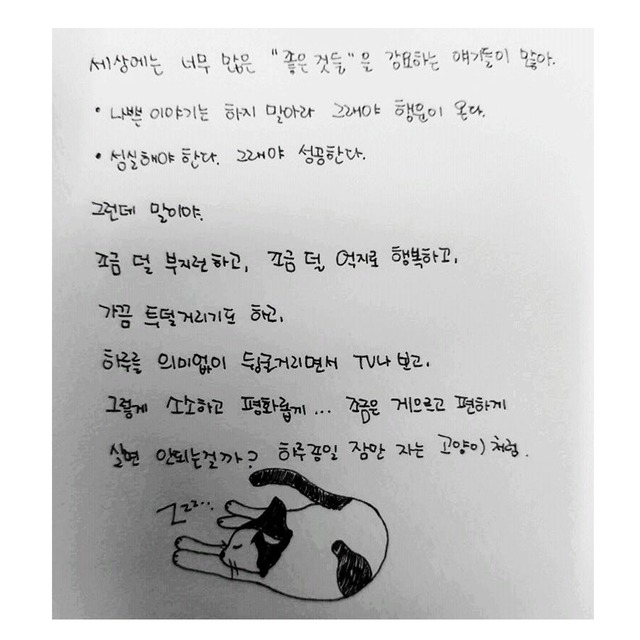 세상에는 너무 많은 "좋은것들"을 강요하는 얘기들이 많아.
• 나쁜 이야기는 하지 말아라 그래야 행운이 온다.
• 성실해야 한다. 그래야 성공한다.
그런데 말이야.
조금 덜 부지런하고, 조금 덜 억지로 행복하고,
가끔 투덜거리기도 하고,
하루를 의미없이 뒹굴거리면서 TV나 보고,
그렇게 소소하고 평화롭게... 조금은 게으르고 편하게
살면 안되는걸까? 하루종일 잠만 자는 고양이처럼.
zzz...